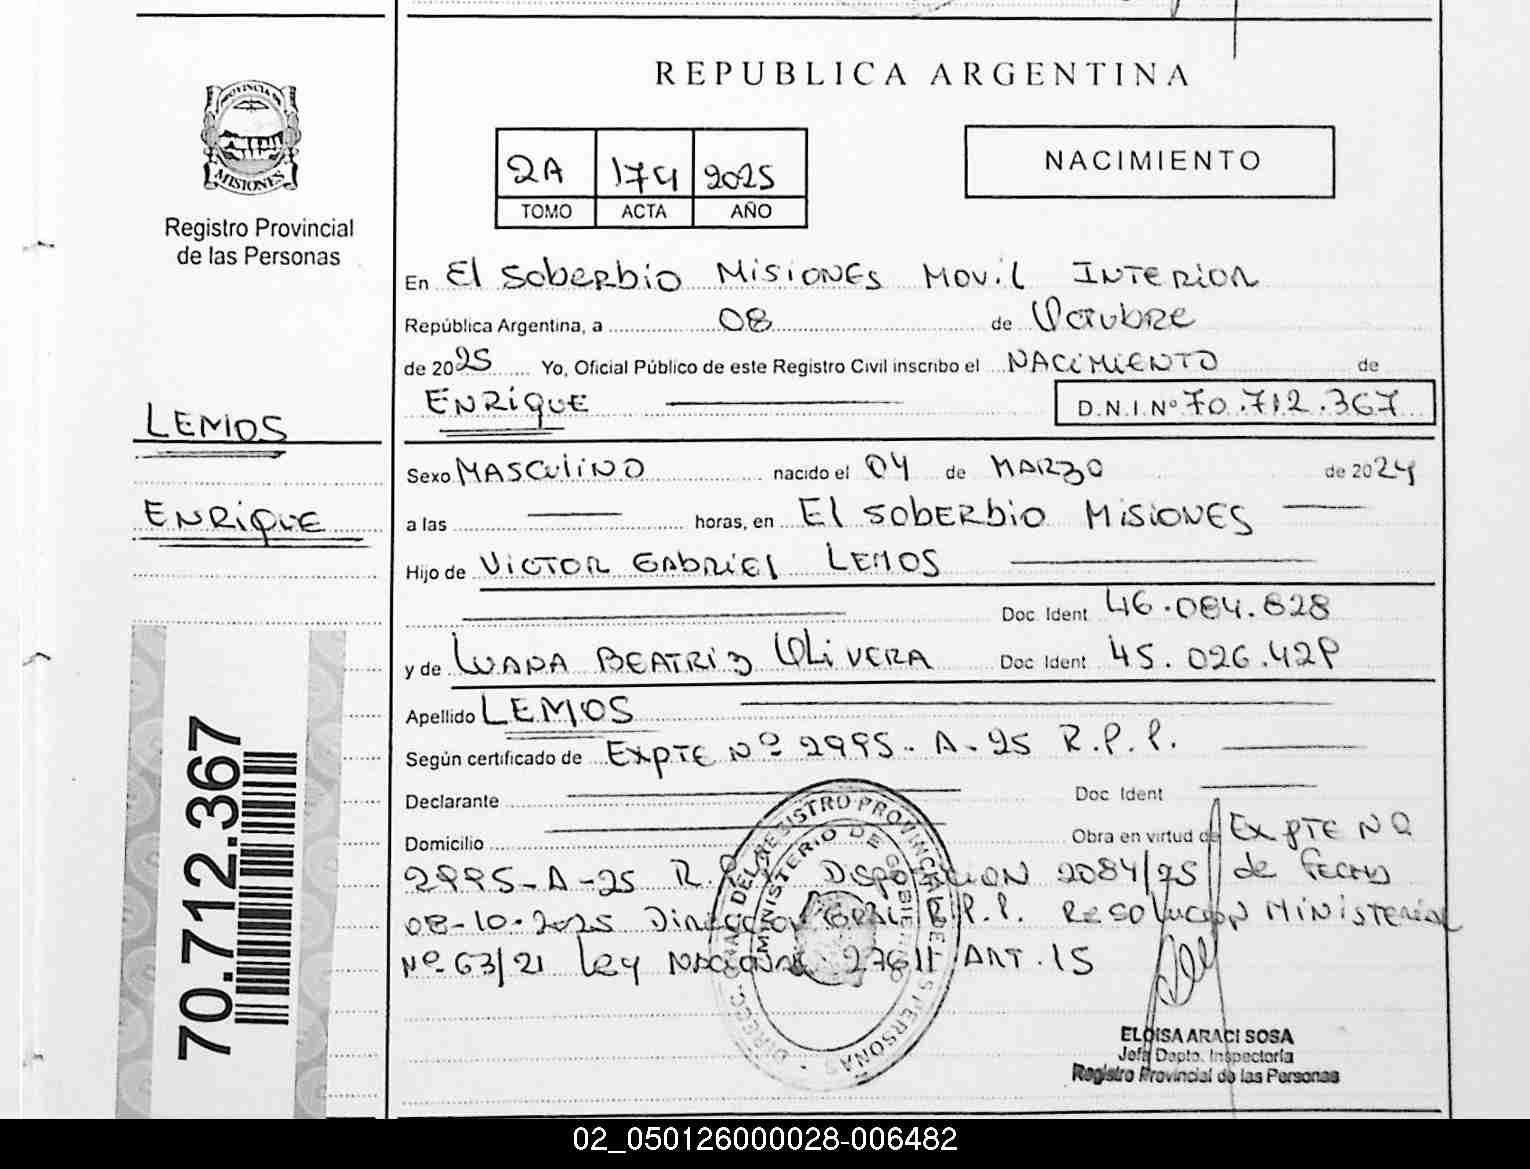 REPUBLICA ARGENTINA
PROVINCIA DE MISIONES
Registro Provincial
de las Personas
2A 174 2025
TOMO ACTA AÑO
NACIMIENTO
En El Soberbio Misiones Movil Interior
República Argentina, a 08 de Octubre
de 2025 Yo, Oficial Público de este Registro Civil inscribo el NACIMIENTO de
ENRIQUE
D.N.I.Nº 70.712.367
LEMOS
ENRIQUE
Sexo MASCULINO nacido el 04 de MARZO de 2024
a las horas, en El SOBERBIO MISIONES
Hijo de VICTOR GABRIEL LEMOS
Doc Ident 46.084.828
y de LUANA BEATRIZ OLIVERA Doc Ident 45.026.429
Apellido LEMOS
Según certificado de EXPTE Nº 2995-A-25 R.P.P.
Declarante Doc Ident
Domicilio Obra en virtud de EXPTE Nº
2995-A-25 R.P.P. DISPOSICION 2084/25 de FECHA
08-10-2025 DIRECCION GRAL R.P.P. RESOLUCION MINISTERIAL
Nº 63/21 Ley NACIONAL 27611 ART. 15
DIRECC. GRAL. DEL REGISTRO PROVINCIAL DE LAS PERSONAS
MINISTERIO DE GOBIERNO
ELOISA ARACI SOSA
Jefa Depto. Inspectoría
Registro Provincial de las Personas
70.712.367
02_050126000028-006482